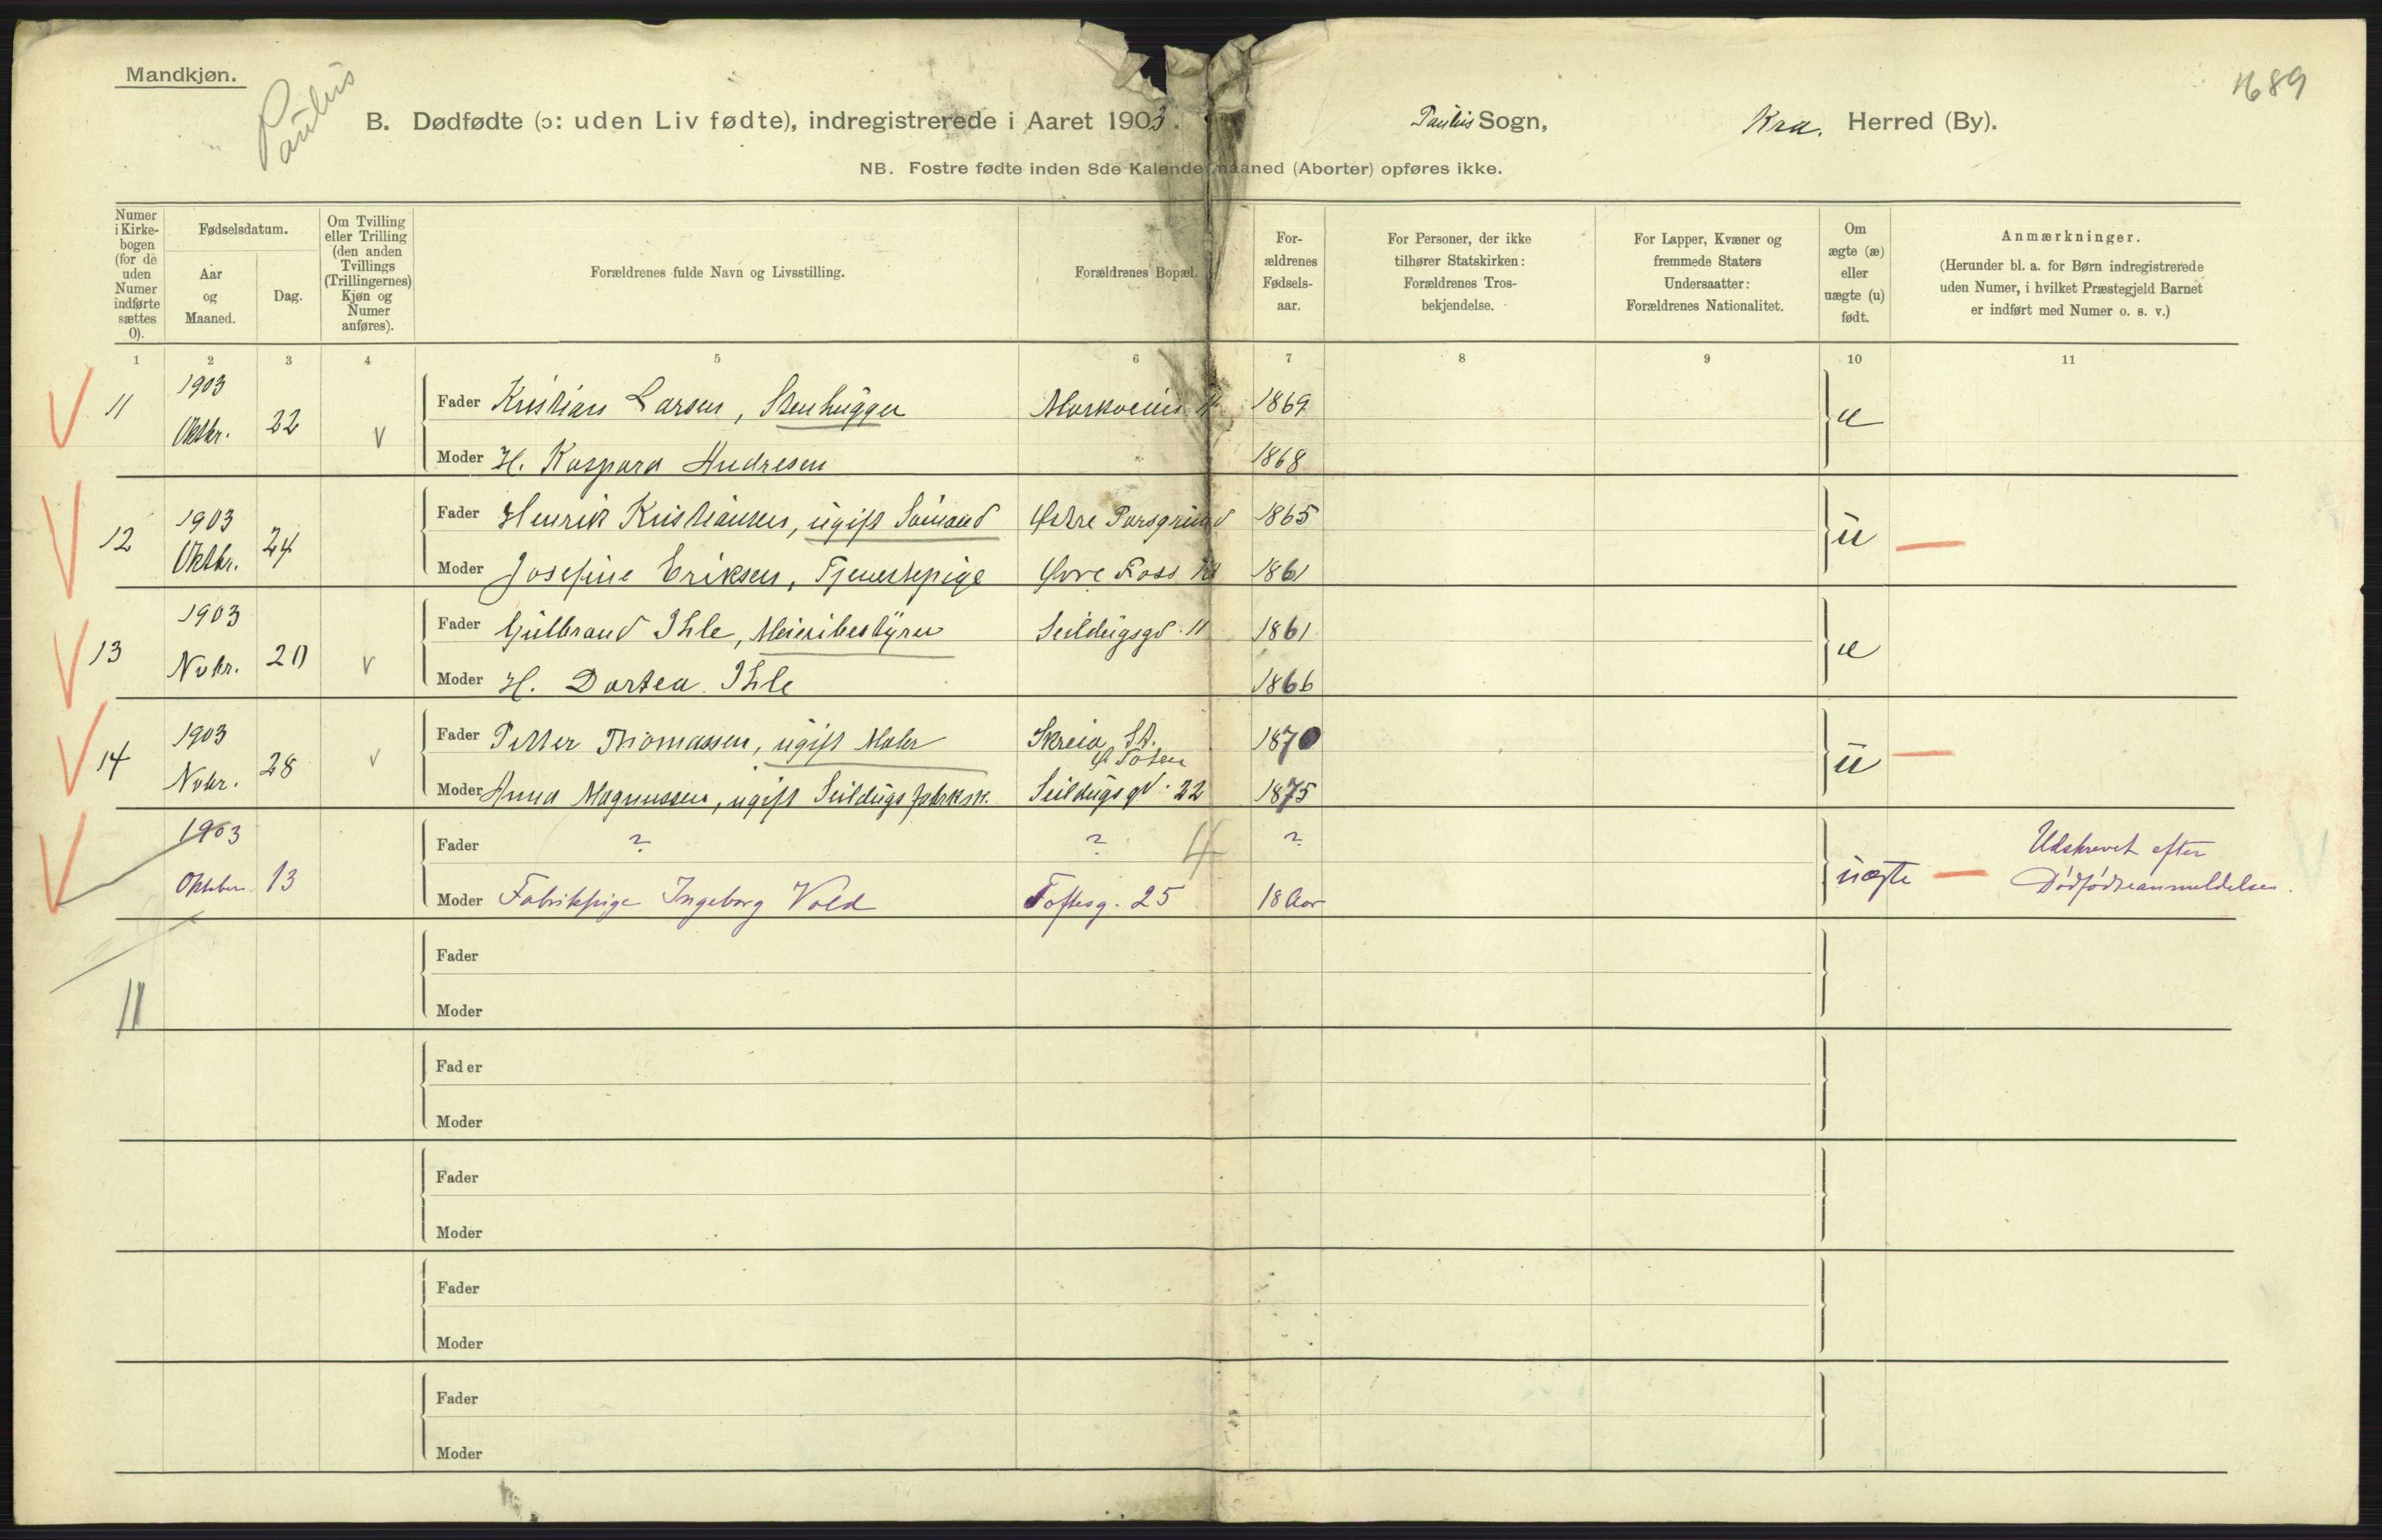 Mandkjøn.
Paulus
1689
B. Dødfødte (ɔ: uden Liv fødte), indregistrerede i Aaret 1903. Paulus Sogn, Kra. Herred (By).
NB. Fostre fødte inden 8de Kalendermaaned (Aborter) opføres ikke.
Numer i Kirke-bogen (for de uden Numer indførte sættes 0).
Fødselsdatum.
Aar og Maaned.
Dag.
Om Tvilling eller Trilling (den anden Tvillings (Trillingernes) Kjøn og Numer anføres).
Forældrenes fulde Navn og Livsstilling.
Forældrenes Bopæl.
For-ældrenes Fødsels-aar.
For Personer, der ikke tilhører Statskirken: Forældrenes Tros-bekjendelse.
For Lapper, Kvæner og fremmede Staters Undersaatter: Forældrenes Nationalitet.
Om ægte (æ) eller uægte (u) født.
Anmærkninger.
(Herunder bl. a. for Børn indregistrerede uden Numer, i hvilket Præstegjeld Barnet er indført med Numer o. s. v.)
1 2 3 4 5 6 7 8 9 10 11
11 1903 Oktbr. 22 v
Fader Kristian Larsen, Stenhugger 1869 æ
Moder H. Kaspara Andresen 1868
12 1903 Oktbr. 24
Fader Henrik Kristiansen, ugift Sømand Østre Porsgrund 1865 u
Moder Josefine Eriksen, Tjenestepige Øvre Foss 1861
13 1903 Novbr. 20 v
Fader Gulbrand Ihle, Meieribestyrer Seildugsgd. 11 1861 æ
Moder H. Dortea Ihle 1866
14 1903 Novbr. 28 v
Fader Petter Thomassen, ugift Maler Skreia St. Ø Toten 1870 u
Moder Anna Magnussen, ugift Seildugsfabrksk. Seildugsgd. 22 1875
1903 Oktober 13
Fader ? ? 4 ? uægte Udskrevet efter
Moder Fabrikpige Ingeborg Vold Toftesg. 25 18 Aar Dødfødteanmeldelsen.
Fader
Moder
11
Fader
Moder
Fader
Moder
Fader
Moder
Fader
Moder